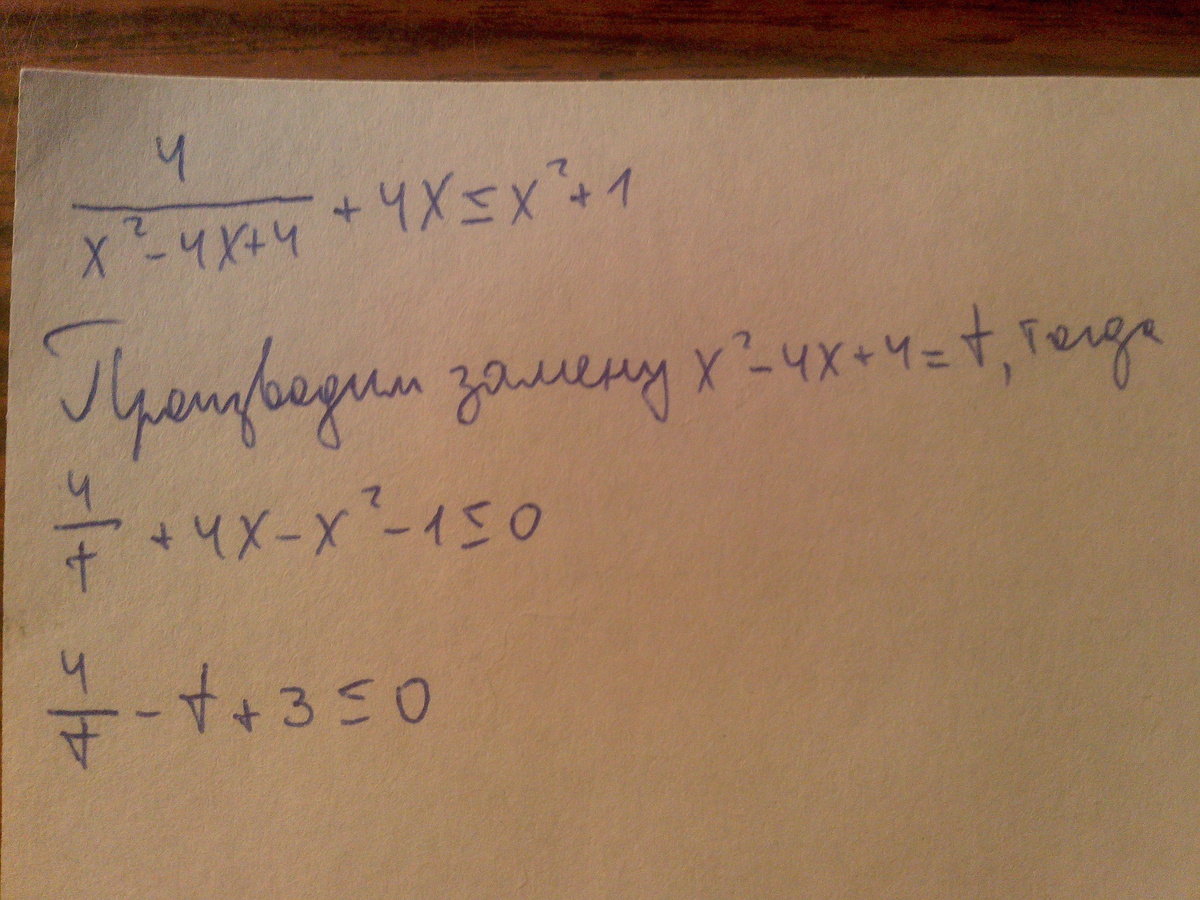 4
x²-4x+4 + 4x ≤ x²+1
Производим замену x²-4x+4=t, тогда
4/t + 4x - x² - 1 ≤ 0
4/t - t + 3 ≤ 0